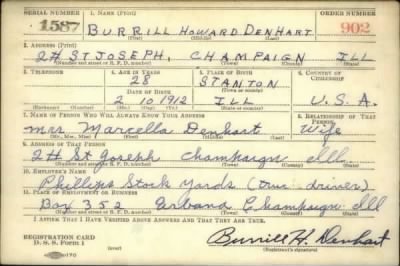 SERIAL NUMBER 1. NAME (Print) ORDER NUMBER
1587 BURRILL HOWARD DENHART 902
(First) (Middle) (Last)
2. ADDRESS (Print)
2# ST JOSEPH, CHAMPAIGN ILL
(Number and street or R. F. D. number) (Town) (County) (State)
3. TELEPHONE 4. AGE IN YEARS 5. PLACE OF BIRTH 6. COUNTRY OF CITIZENSHIP
28 STANTON
(Town or county)
DATE OF BIRTH
2 10 1912 ILL U.S.A.
(Exchange) (Number) (Mo.) (Day) (Yr.) (State or country)
7. NAME OF PERSON WHO WILL ALWAYS KNOW YOUR ADDRESS 8. RELATIONSHIP OF THAT PERSON
Mrs. Marcella Denhart Wife
(Mr., Mrs., Miss) (First) (Middle) (Last)
9. ADDRESS OF THAT PERSON
2# St Joseph Champaign Ill.
(Number and street or R. F. D. number) (Town) (County) (State)
10. EMPLOYER'S NAME
Phillips Stock Yards (truc driver)
11. PLACE OF EMPLOYMENT OR BUSINESS
Box 352 Urbana Champaign Ill
(Number and street or R. F. D. number) (Town) (County) (State)
I AFFIRM THAT I HAVE VERIFIED ABOVE ANSWERS AND THAT THEY ARE TRUE.
REGISTRATION CARD
D. S. S. Form 1
Burrill H. Denhart
(Registrant's signature)